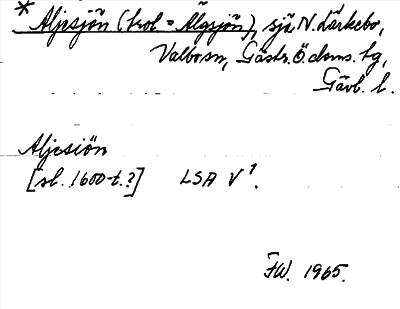 * Aljesjön (trol = Älgsjön), sjä N. Lärkebo,
Valbo sn, Gästr. Ö. doms. tg,
Gävl. l.
Aljesiön
[sl. 1600-t.?] LSA V¹.
FW. 1965.